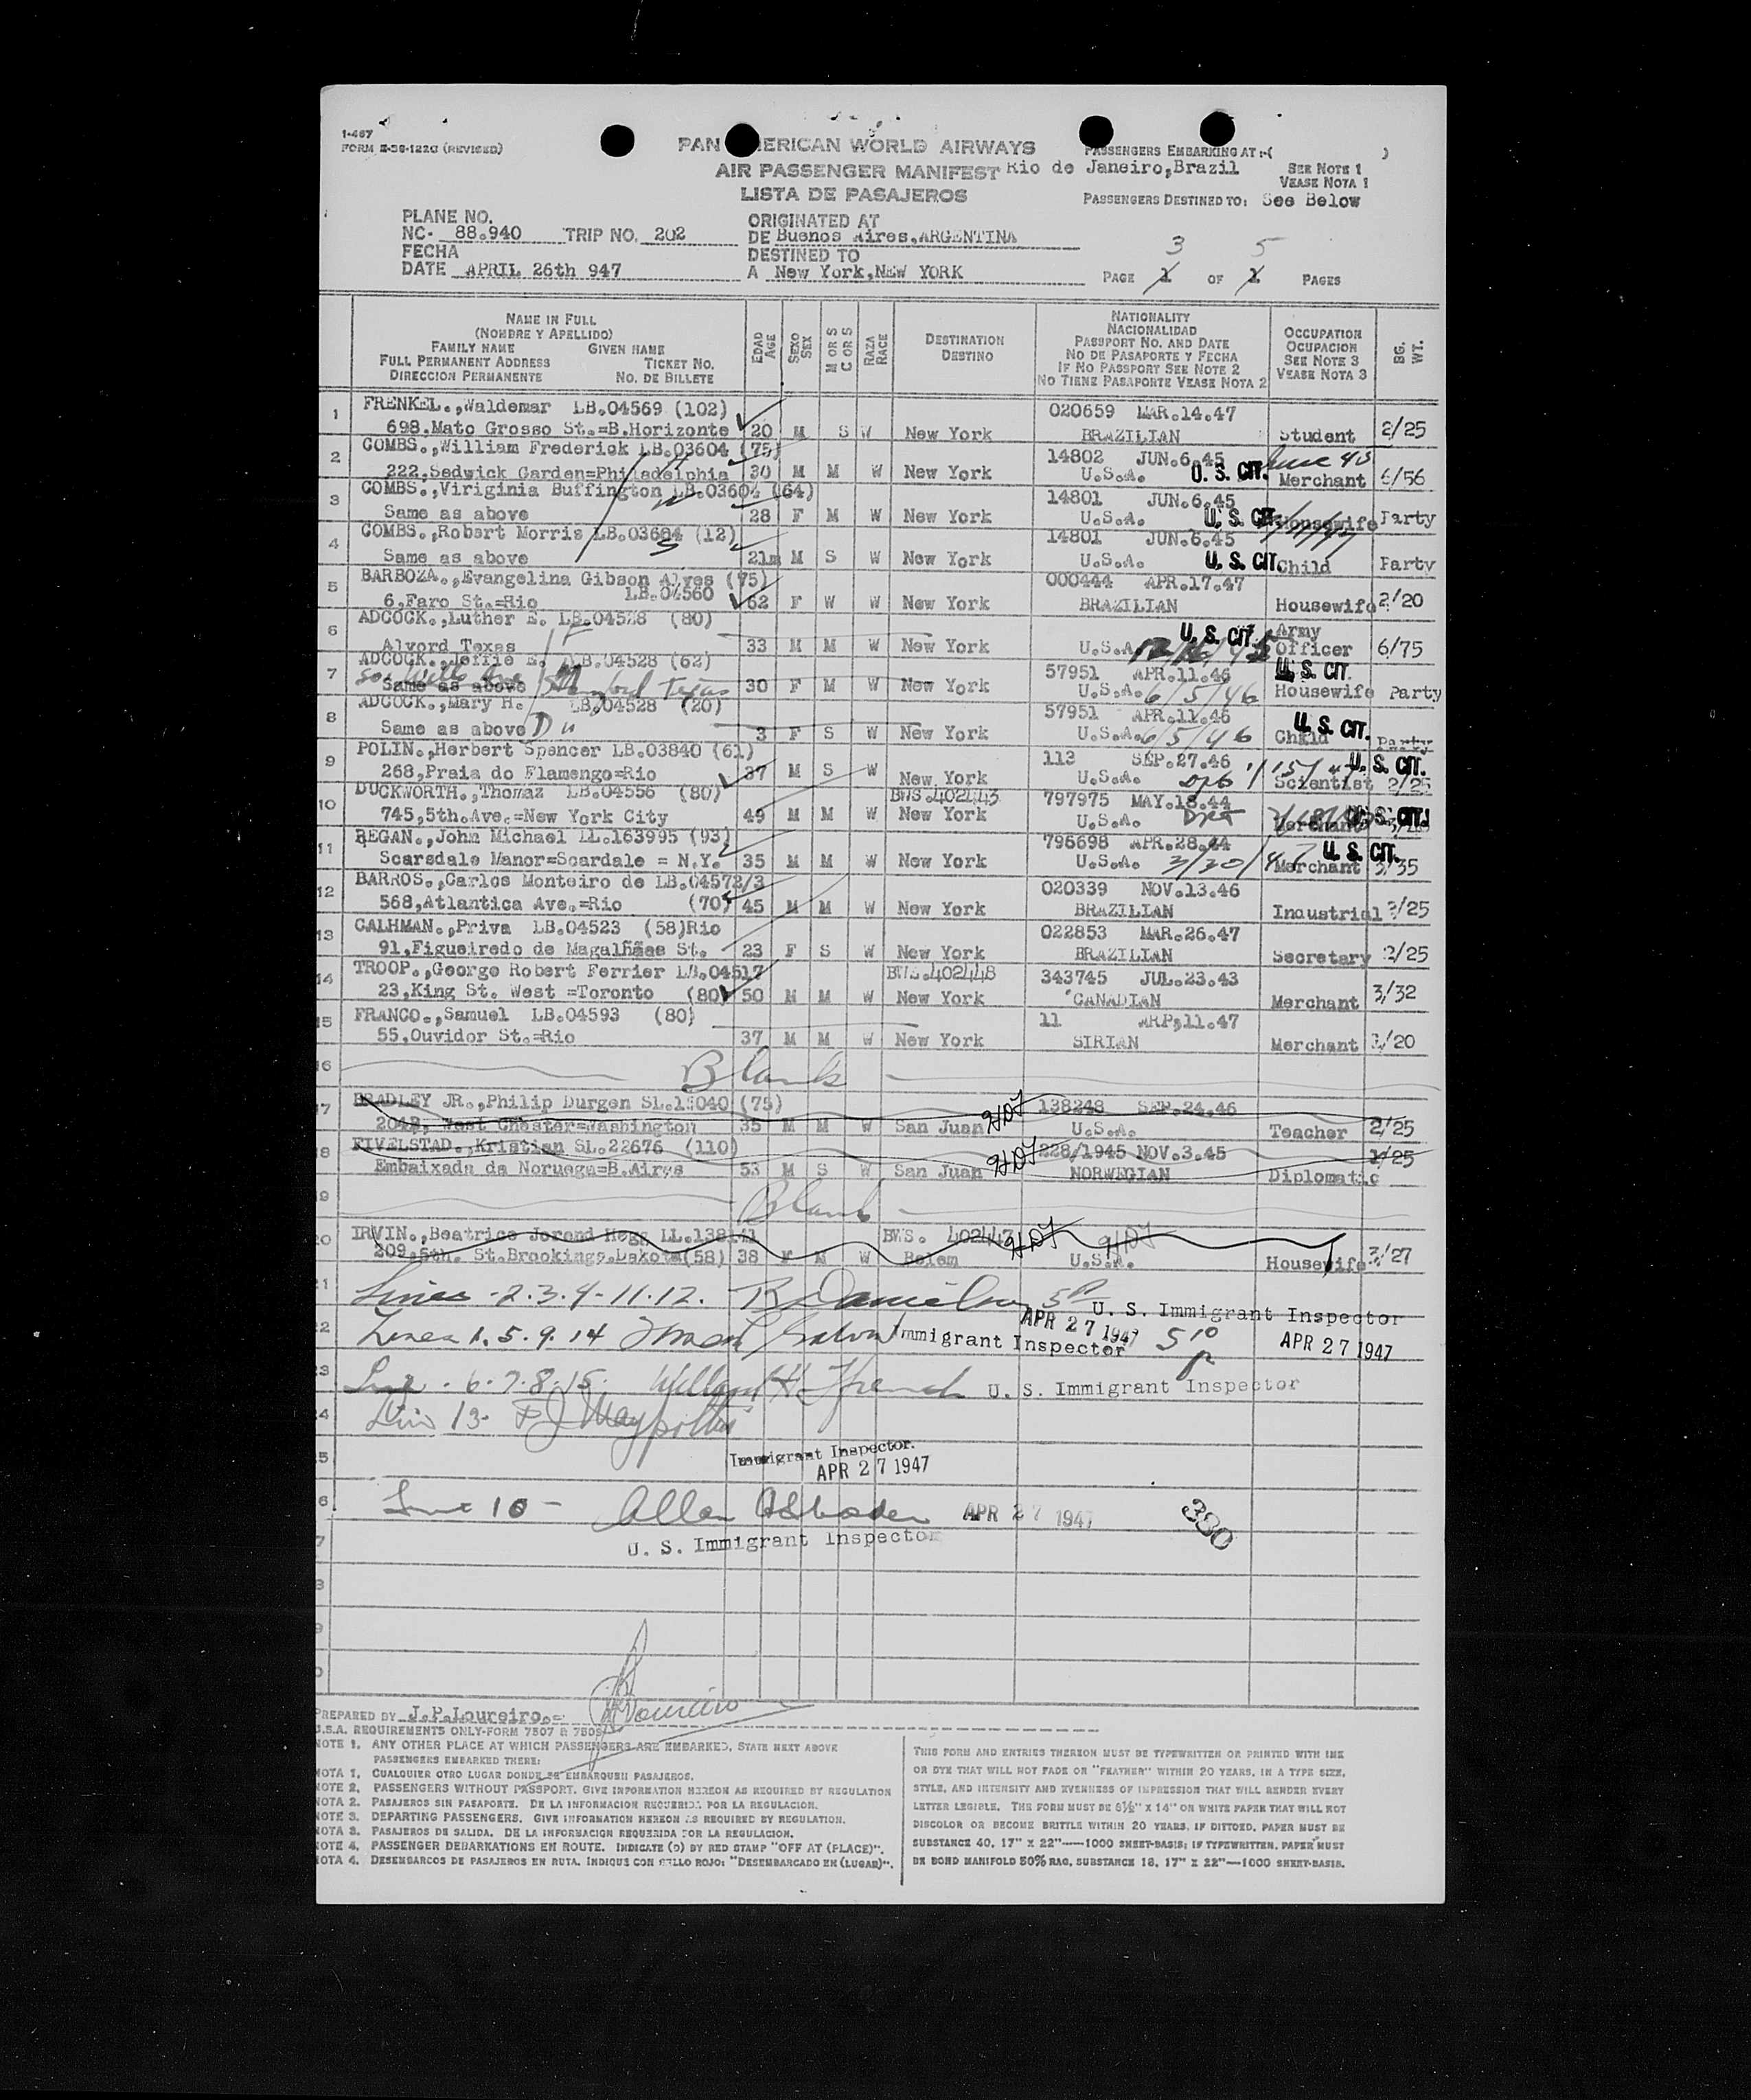 1-467
FORM E-36-122C (REVISED)
PAN AMERICAN WORLD AIRWAYS
AIR PASSENGER MANIFEST
LISTA DE PASAJEROS
PASSENGERS EMBARKING AT:-( )
Rio de Janeiro,Brazil
SEE NOTE 1
VEASE NOTA 1
PASSENGERS DESTINED TO: See Below
PLANE NO.
NC- 88.940 TRIP NO. 202
FECHA
DATE APRIL 26th 947
ORIGINATED AT
DE Buenos Aires,ARGENTINA
DESTINED TO
A New York,NEW YORK
3 5
PAGE 1 OF 1 PAGES
NAME IN FULL
(NOMBRE Y APELLIDO)
FAMILY NAME GIVEN NAME
FULL PERMANENT ADDRESS TICKET NO.
DIRECCION PERMANENTE NO. DE BILLETE
EDAD AGE
SEXO SEX
M OR S C OR S
RAZA RACE
DESTINATION
DESTINO
NATIONALITY
NACIONALIDAD
PASSPORT NO. AND DATE
NO DE PASAPORTE Y FECHA
IF NO PASSPORT SEE NOTE 2
NO TIENE PASAPORTE VEASE NOTA 2
OCCUPATION
OCUPACION
SEE NOTE 3
VEASE NOTA 3
BG. WT.
1 FRENKEL.,Waldemar LB.04569 (102) 020659 MAR.14.47
698,Mato Grosso St.=B.Horizonte 20 M S W New York BRAZILIAN Student 2/25
2 COMBS.,William Frederick LB.03604 (75) 14802 JUN.6.45
222,Sedwick Garden=Philadelphia 30 M M W New York U.S.A. U. S. CIT. Merchant 6/56
3 COMBS.,Viriginia Buffington LB.03604 (64) 14801 JUN.6.45
Same as above 28 F M W New York U.S.A. U. S. CIT. Housewife Party
4 COMBS.,Robert Morris LB.03604 (12) 14801 JUN.6.45
Same as above 21m M S W New York U.S.A. U. S. CIT. Child Party
5 BARBOZA.,Evangelina Gibson Alves (75) 000444 APR.17.47
LB.04560
6,Faro St.=Rio 62 F W W New York BRAZILIAN Housewife 2/20
6 ADCOCK.,Luther E. LB.04528 (80) U. S. CIT. Army
Alvord Texas 33 M M W New York U.S.A. Officer 6/75
7 ADCOCK.,Jeffie E. LB.04528 (62) 57951 APR.11.46 U. S. CIT.
Same as above Texas 30 F M W New York U.S.A. 6/5/46 Housewife Party
8 ADCOCK.,Mary H. LB.04528 (20) 57951 APR.11.46 U. S. CIT.
Same as above 3 F S W New York U.S.A. 6/5/46 Child Party
9 POLIN.,Herbert Spencer LB.03840 (61) 113 SEP.27.46 U. S. CIT.
268,Praia do Flamengo=Rio 37 M S W New York U.S.A. Scientist 2/25
10 DUCKWORTH.,Thomaz LB.04556 (80) BWS.402443 797975 MAY.18.44
745,5th.Ave.=New York City 49 M M W New York U.S.A. Merchant U. S. CIT.
11 REGAN.,John Michael LL.163995 (93) 796698 APR.28.44 U. S. CIT.
Scarsdale Manor=Scardale = N.Y. 35 M M W New York U.S.A. 3/20/47 Merchant 3/35
12 BARROS.,Carlos Monteiro de LB.04572/3 020339 NOV.13.46
568,Atlantica Ave.=Rio (70) 45 M M W New York BRAZILIAN Industrial 2/25
13 CALHMAN.,Priva LB.04523 (58)Rio 022853 MAR.26.47
91,Figueiredo de Magalhães St. 23 F S W New York BRAZILIAN Secretary 2/25
14 TROOP.,George Robert Ferrier LB.04517 BWS.402448 343745 JUL.23.43
23,King St. West =Toronto (80) 50 M M W New York CANADIAN Merchant 3/32
15 FRANCO.,Samuel LB.04593 (80) 11 ARP,11.47
55,Ouvidor St.=Rio 37 M M W New York SIRIAN Merchant 1/20
16 Blank
17 BRADLEY JR.,Philip Durgen SL.15040 (75) HDJ 138248 SEP.24.46
204B, West Chester=Washington 35 M M W San Juan U.S.A. Teacher 2/25
18 FIVELSTAD.,Kristian SL.22676 (110) HDJ 228/1945 NOV.3.45 1/25
Embaixada da Noruega=B.Aires 53 M S W San Juan NORWEGIAN Diplomatic
19 Blank
20 IRVIN.,Beatrice Jorend Hegg LL.138141 BWS. 402447 HDJ HDJ
209,5th. St.Brookings,Dakota(58) 38 F M W Belem U.S.A. Housewife 3/27
21 Lines -2.3.4-11.12. U. S. Immigrant Inspector
APR 27 1947
22 Lines 1.5.9.14 Immigrant Inspector APR 27 1947
23 Line . 6.7.8.15. William H. French U. S. Immigrant Inspector
24 Line 13-
25 Immigrant Inspector.
APR 27 1947
26 Line 10 - Allen APR 27 1947
380
U. S. Immigrant Inspector
PREPARED BY J.P.Loureiro.=
U.S.A. REQUIREMENTS ONLY-FORM 7507 & 7509
NOTE 1. ANY OTHER PLACE AT WHICH PASSENGERS ARE EMBARKED, STATE NEXT ABOVE
PASSENGERS EMBARKED THERE:
NOTA 1. CUALQUIER OTRO LUGAR DONDE SE EMBARQUEN PASAJEROS.
NOTE 2. PASSENGERS WITHOUT PASSPORT. GIVE INFORMATION HEREON AS REQUIRED BY REGULATION
NOTA 2. PASAJEROS SIN PASAPORTE. DE LA INFORMACION REQUERIDA POR LA REGULACION.
NOTE 3. DEPARTING PASSENGERS. GIVE INFORMATION HEREON AS REQUIRED BY REGULATION.
NOTA 3. PASAJEROS DE SALIDA. DE LA INFORMACION REQUERIDA FOR LA REGULACION.
NOTE 4. PASSENGER DEBARKATIONS EN ROUTE. INDICATE (D) BY RED STAMP "OFF AT (PLACE)".
NOTA 4. DESEMBARCOS DE PASAJEROS EN RUTA. INDIQUE CON SELLO ROJO: "DESEMBARCADO EN (LUGAR)".
THIS FORM AND ENTRIES THEREON MUST BE TYPEWRITTEN OR PRINTED WITH INK
OR DYE THAT WILL NOT FADE OR "FEATHER" WITHIN 20 YEARS, IN A TYPE SIZE,
STYLE, AND INTENSITY AND EVENNESS OF IMPRESSION THAT WILL RENDER EVERY
LETTER LEGIBLE. THE FORM MUST BE 8½" X 14" ON WHITE PAPER THAT WILL NOT
DISCOLOR OR BECOME BRITTLE WITHIN 20 YEARS. IF DITTOED, PAPER MUST BE
SUBSTANCE 40. 17" X 22"—1000 SHEET-BASIS; IF TYPEWRITTEN, PAPER MUST
BE BOND MANIFOLD 50% RAG, SUBSTANCE 16, 17" X 22"—1000 SHEET-BASIS.